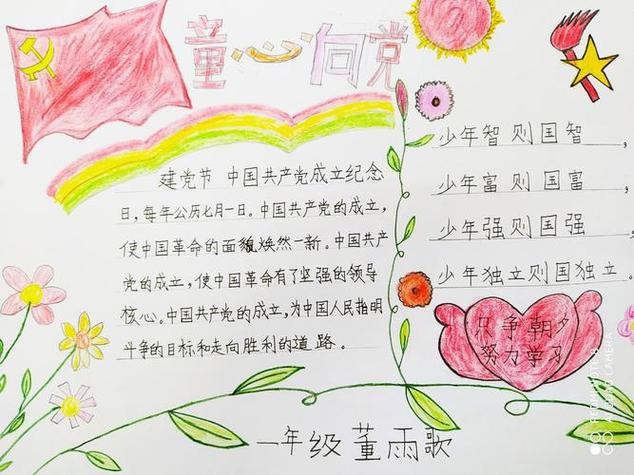 童心向党
建党节 中国共产党成立纪念
日,每年公历七月一日。中国共产党的成立,
使中国革命的面貌焕然一新。中国共产
党的成立,使中国革命有了坚强的领导
核心。中国共产党的成立,为中国人民指明
斗争的目标和走向胜利的道路。
少年智则国智,
少年富则国富,
少年强则国强,
少年独立则国独立。
只争朝夕
努力学习
一年级 董雨歌